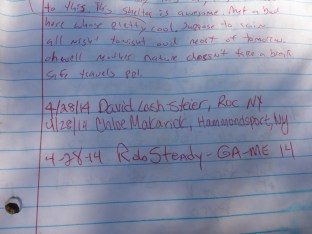 to this this shelter is awesome. Met a dude
here whose pretty cool. Suppose to rain
all night tonight and most of tomorrow
oh well mother nature doesn't take a break
safe travels
4/28/14 David Lash-Staer, Roc NY
4/28/14 Chloe Makarick, Hammondsport, Ny
4-28-14 Rdo Steady - GA-ME 14